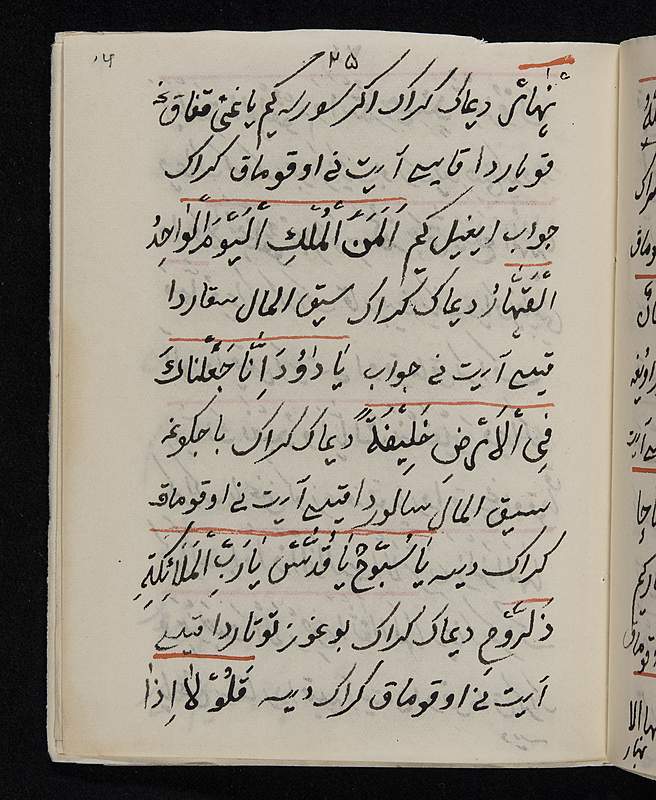 ۲۵
نَهَارْ دیماک کراک اکر سورسه کیم یاغنی قفاق غه
قویاردا قایسی آیت نی اوقوماق کراک
جواب ایغیل کیم اَلَمَنِ الْمُلْكِ الْیَوْمَ الْوٰاحِدُ
الْقَهَّارُ دیماک کراک سیق المال سقاردا
قیسی آیت نی جواب یَا دٰاوُدَ اِنَّا جَعَلْنَاكَ
فِی الْاَرْضِ خَلِیْفَةً دیماک کراک باجکوغه
سیق المال سالوردا قیسی آیت نی اوقوماق
کراک دیسه یَا سُبُّوْحُ یَا قُدُّسْ یَا رَبَّ الْمَلَائِکَةِ
دیماک کراک بوغوز توتاردا قیسی
آیت نی اوقوماق کراک دیسه قَلُوْ لٰا اِذَا